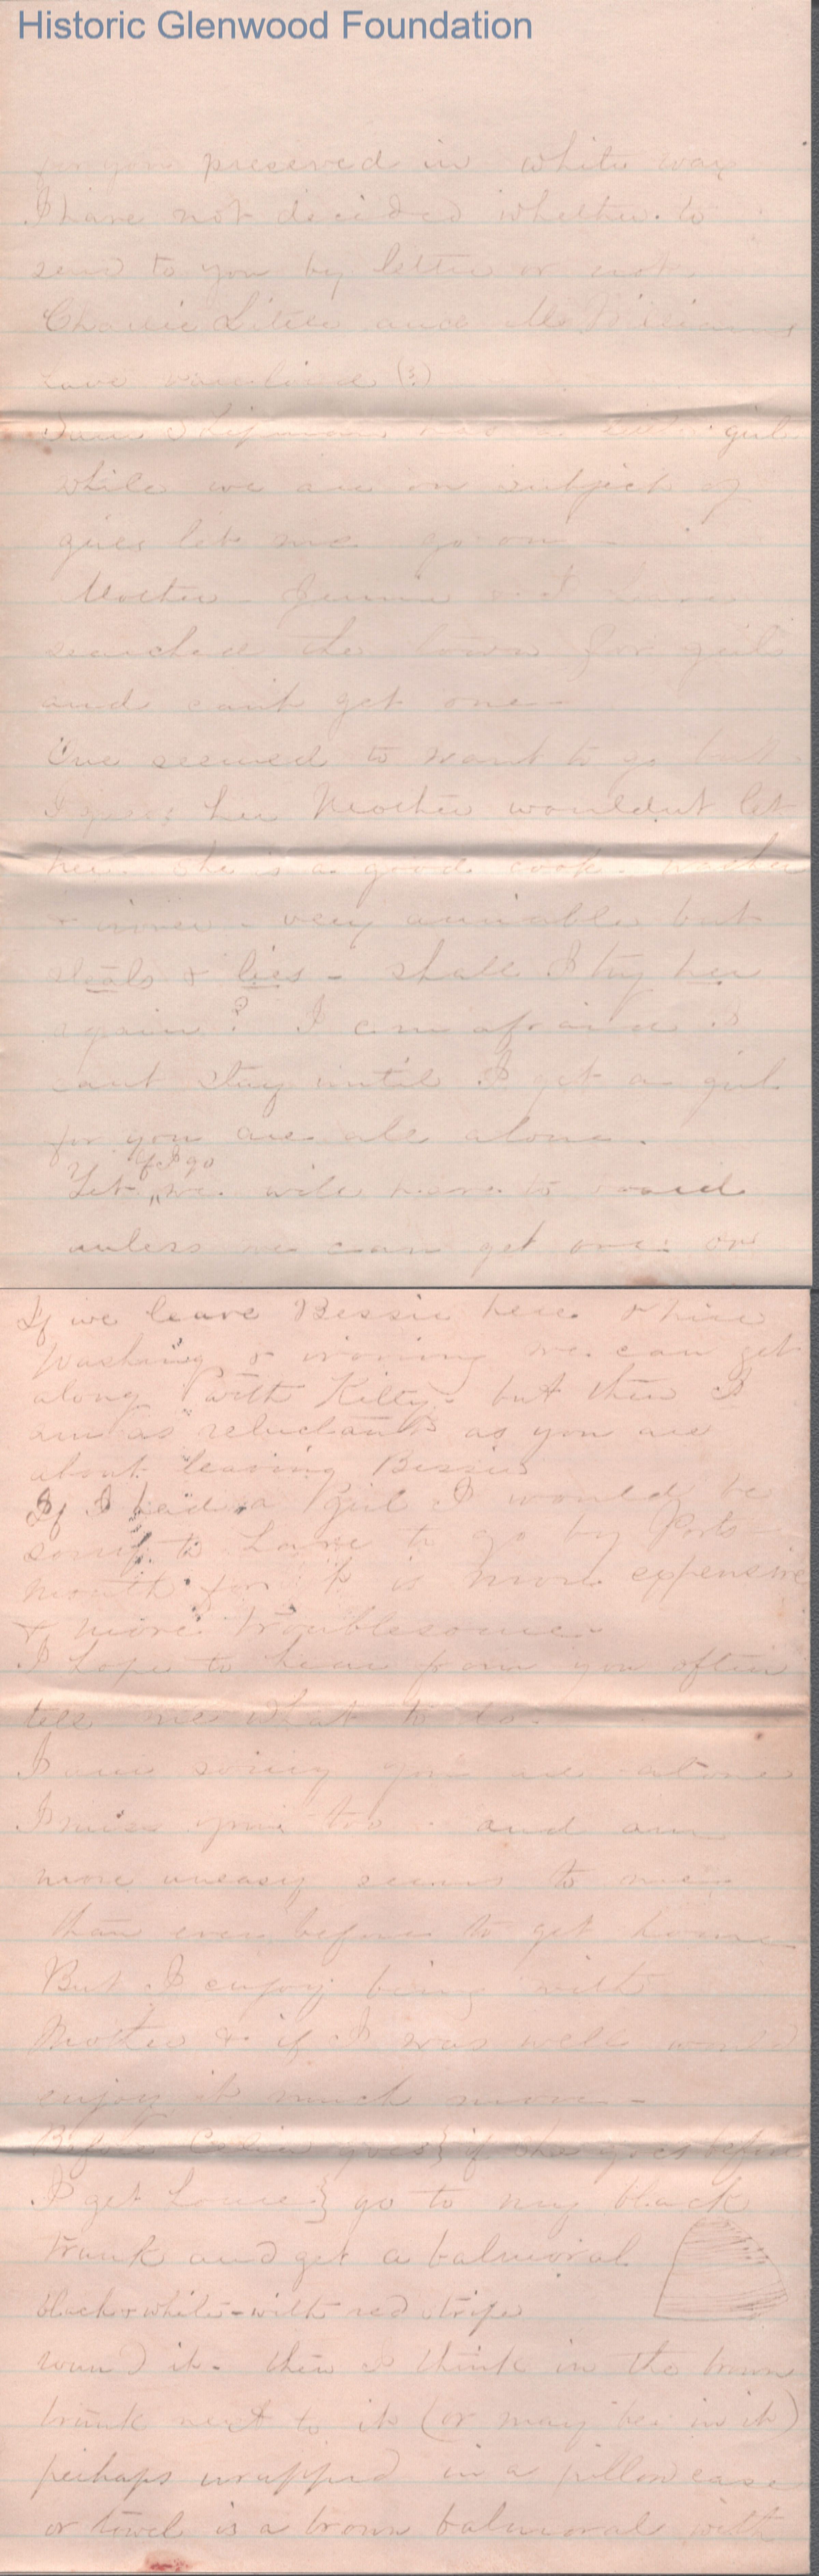 Historic Glenwood Foundation
for you preserved in white wax
I have not decided whether to
send to you by letter or not
Charlie Little and Mr Williams
have
has a little girl
while we are on subject of
girls let me go on -
Mother - Jennie & I have
searched the town for girl
and cant get one -
One seemed to want to go but
I guess her Mother wouldnt let
her. she is a good cook - washer
& ironer - very amiable but
steals & lies - shall I try her
again? I am afraid I
cant stay until I get a girl
for you are all alone.
if I go
Yet we will have to board
unless we can get one. or
If we leave Bessie here & hire
washing & ironing we can get
along with Kitty - but then I
am as reluctant as you are
about leaving Bessie
If I had a girl I would be
sorry to have to go by Ports
mouth for it is more expensive
& more troublesome -
I hope to hear from you often
tell me what to do -
I am sorry you are alone
I miss you too - and am
more uneasy seems to me
than ever before to get home
But I enjoy being with
Mother & if I was well would
enjoy it much more -
Before goes} if she goes before
I get home} go to my black
trunk and get a balmoral
black & white - with red stripe
round it - then I think in the brown
trunk next to it (or may be in it)
perhaps wrapped in a pillow case
or towel is a brown balmoral with